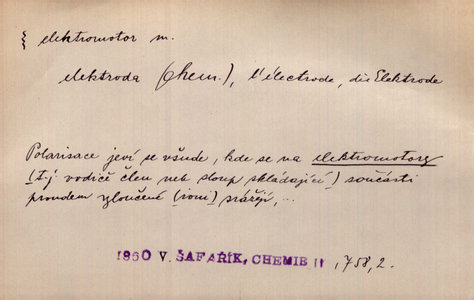 elektromotor m.
elektroda (Chem.), l'électrode, die Elektrode
Polarisace jeví se všude, kde se na elektromotory
(t.j. vodiče člen neb sloup skládající) součásti
proudem vyloučené (ioni) srážejí, ...
1860 V. ŠAFAŘÍK, CHEMIE II, 758, 2.